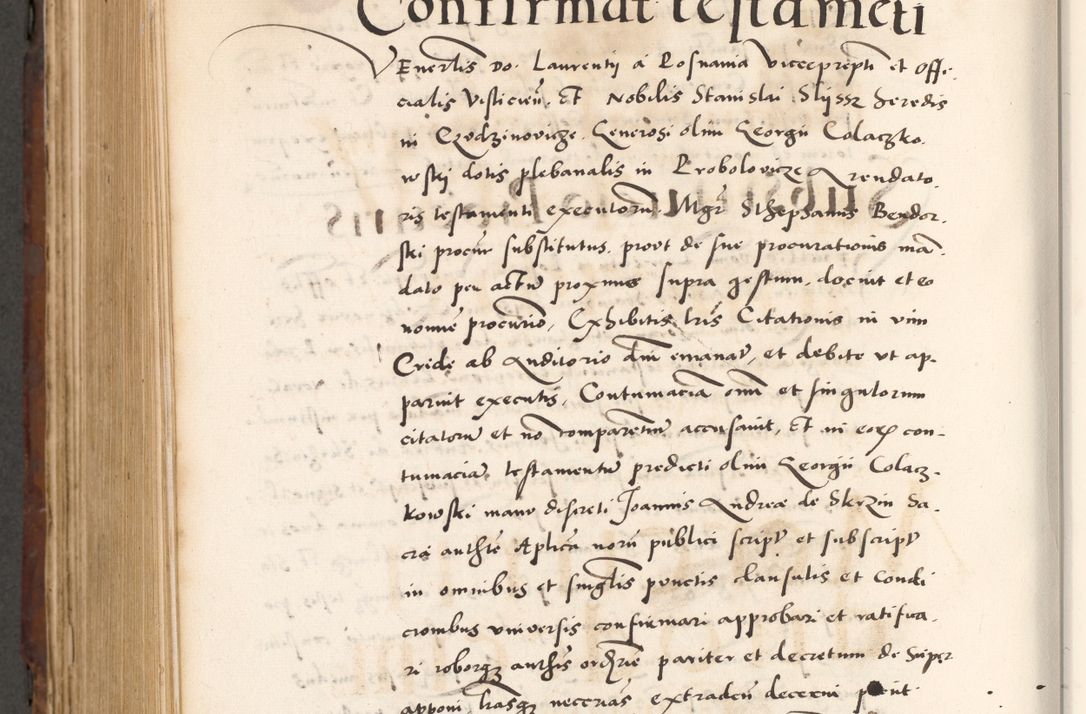 Confirmat testameti
Venerlis Do. Laurentÿ a Posnania viceprepti et offi-
cialis Visliciën, Et Nobilis Stanislai Slÿssz heredis
in Czudzinovicze, Generosi olim Georgii Colaczko.
wskÿ dotis plebanalis in Probolovicze Arendato.
ris testamenti executorū Mgr Sthephanus Bendor.
ski procur substitutus, prout de sue procurationis man.
dato per actū proximus supra gestum, docuit et eo
nomie procurio, Exhibitis lris Citationis in vim
Cride ab Auditorio dni emanat, et debite ut ap-
paruit executis, Contumaciā oniū et singulorum
citatorū et no comparentiū accusavit, Et in eorū con-
tumaciā, testamentū predicti olim Georgii Colacz-
kowski manu discreti Joannis Andreæ de Skrzin Sa-
cra authte Aplica norii publici script et subscript
in omnibus et singlis punctis clausulis et condi
cionibus universis confirmari approbari et ratifica.
ri roborqz authis ordrie pariter et decretum desuper
apponi lrasqz neccrias extradend decerni petiit